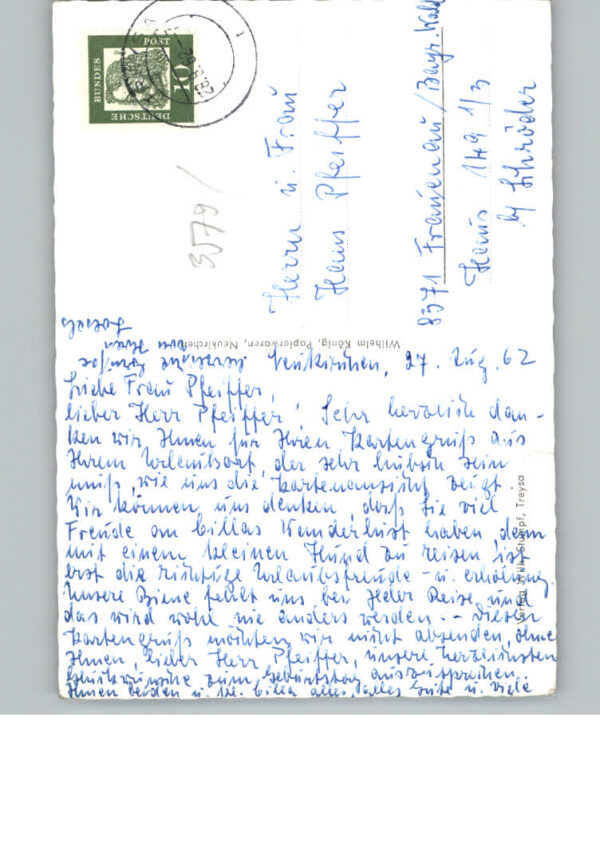 Neukirchen, 27. Aug. 62
Liebe Frau Pfeiffer,
lieber Herr Pfeiffer! Sehr herzlich dan-
ken wir Ihnen für Ihren Kartengruß aus
Ihrem Urlaubsort, der sehr hübsch sein
muß, wie uns die Kartenansicht zeigt.
Wir können uns denken, daß Sie viel
Freude an Cillas Wanderlust haben, denn
mit einem kleinen Hund zu reisen, ist
erst die richtige Urlaubsfreude - u. erholung.
Unsere Biene fehlt uns bei jeder Reise, und
das wird wohl nie anders werden. - Diesen
Kartengruß möchten wir nicht absenden, ohne
Ihnen, lieber Herr Pfeiffer, unsere herzlichsten
Glückwünsche zum Geburtstag auszusprechen.
Ihnen beiden u. kl. Cilla alles, alles Gute u. viele
herzliche Grüße
von Ihren
Wilhelm König, Papierwaren, Neukirchen
Herrn u. Frau
Hans Pfeiffer
8371 Frauenau/Bayr. Wald
Haus 149 1/3
by Schröder
3579/
DEUTSCHE
BUNDES
POST
10
Stumpf, Treysa